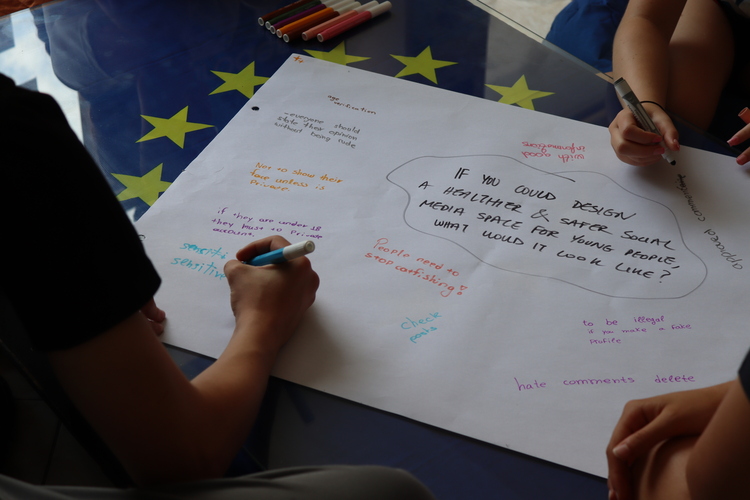 age
verification
everyone should
state their opinion
without being rude
Not to show their
face unless is
Private.
if they are under 18
they must to Private
account.
sensitive
IF YOU COULD DESIGN
A HEALTHIER & SAFER SOCIAL
MEDIA SPACE FOR YOUNG PEOPLE,
WHAT WOULD IT LOOK LIKE?
with good
influencers
approach
People need to
stop catfishing!
check
posts
to be illegal
if you make a fake
profile
hate comments delete